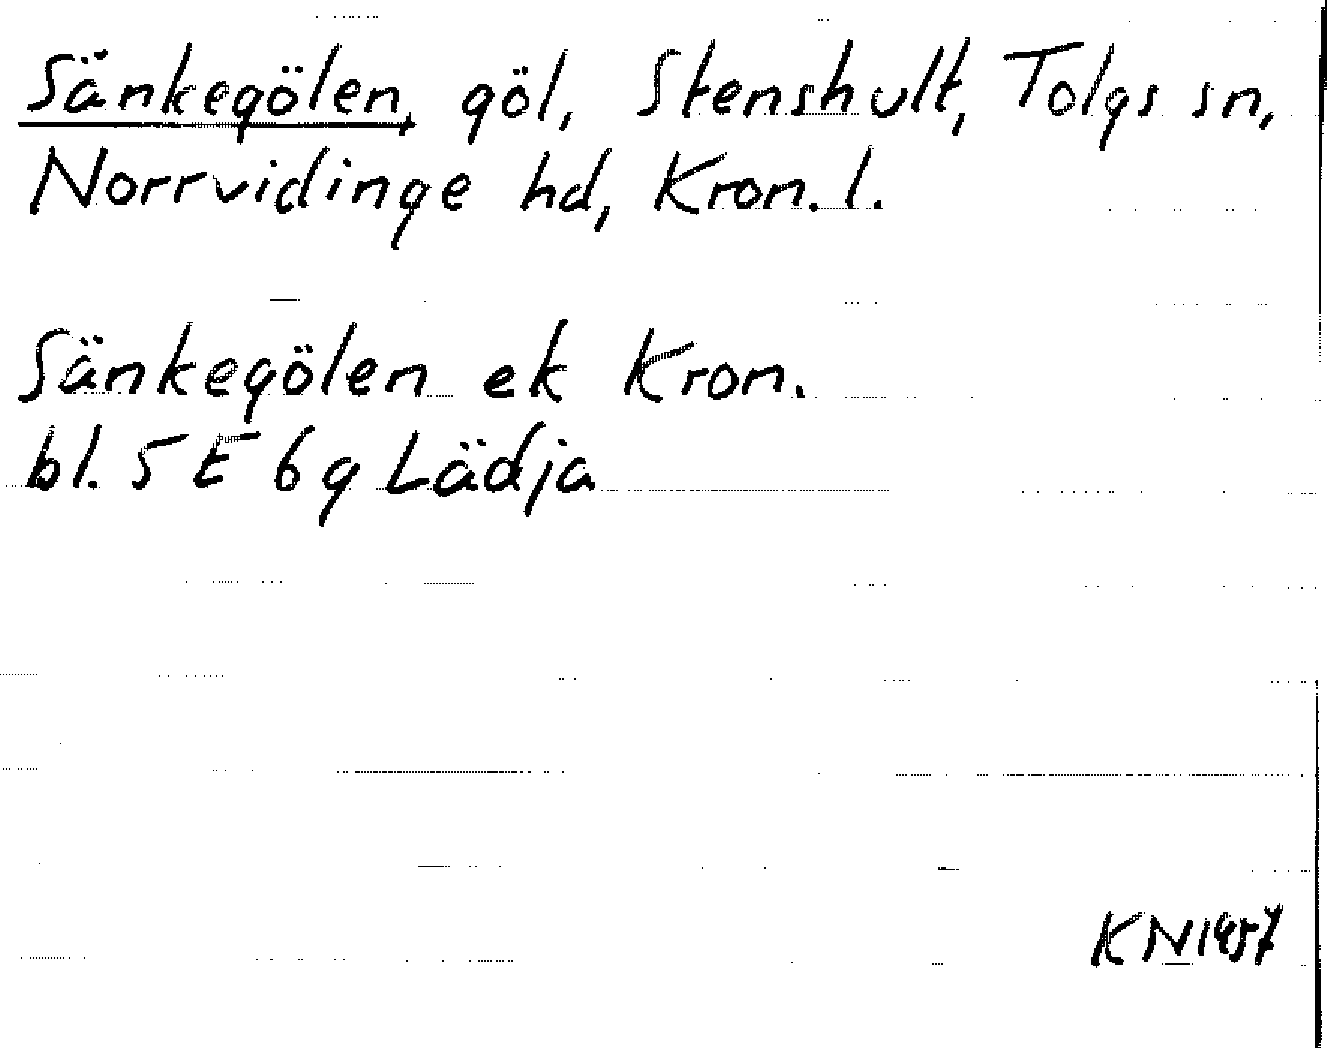 Sänkegölen, göl, Stenshult, Tolgs sn,
Norrvidinge hd, Kron. l.
Sänkegölen ek Kron.
bl. 5 E 6 g Lädja
KN 1957